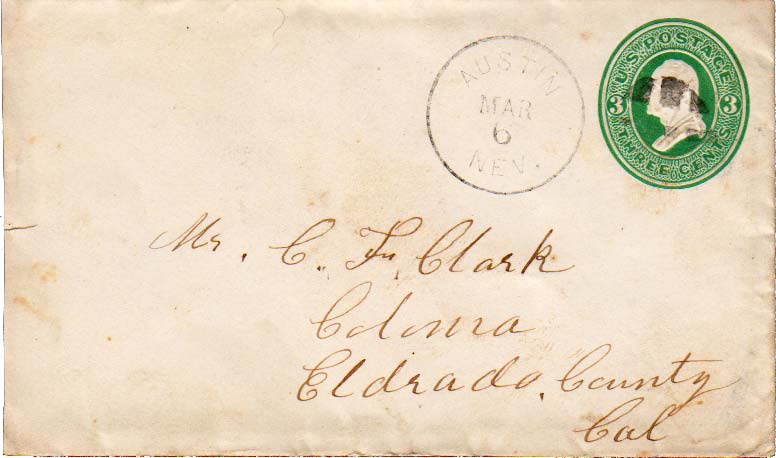 AUSTIN
MAR
6
NEV.
U.S. POSTAGE
3 3
THREE CENTS
Mr. C. F. Clark
Coloma
Eldrado, County
Cal